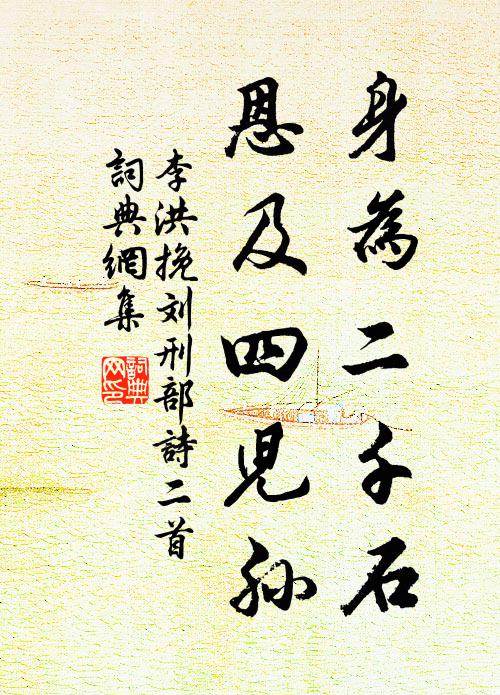 身為二千石
恩及四児孙
李洪挽刘刑部詩二首
詞典網集
詞典网印